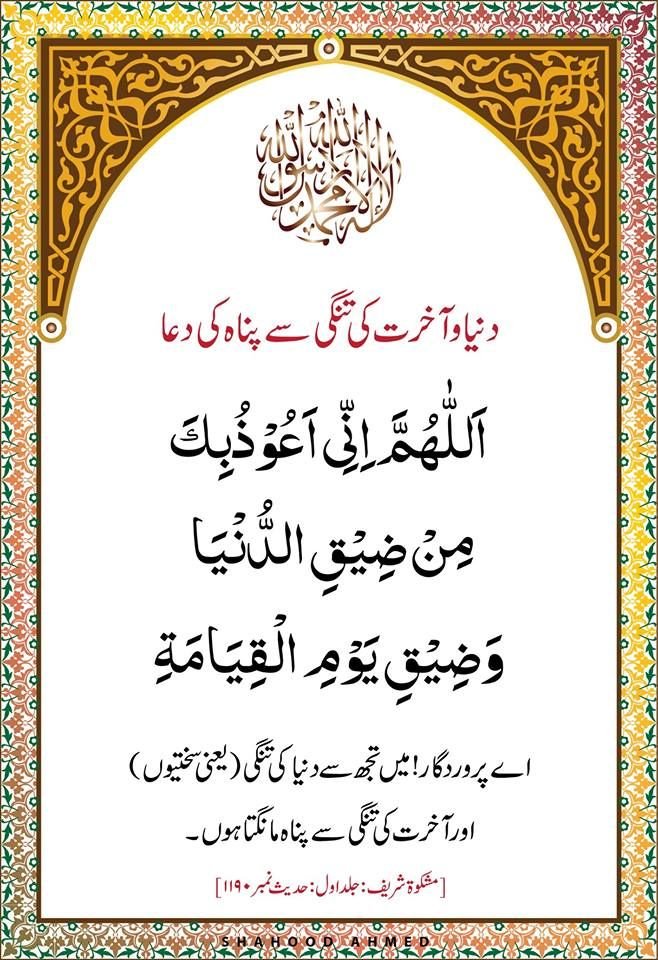 لا إله إلا الله محمد رسول الله
دنیا و آخرت کی تنگی سے پناہ کی دعا
اَللّٰهُمَّ اِنِّی اَعُوْذُبِكَ
مِنْ ضِیْقِ الدُّنْیَا
وَضِیْقِ یَوْمِ الْقِیَامَةِ
اے پروردگار! میں تجھ سے دنیا کی تنگی (یعنی سختیوں)
اور آخرت کی تنگی سے پناہ مانگتا ہوں۔
[مشکوۃ شریف: جلد اول: حدیث نمبر ۱۱۹۰]
SHAHOOD AHMED